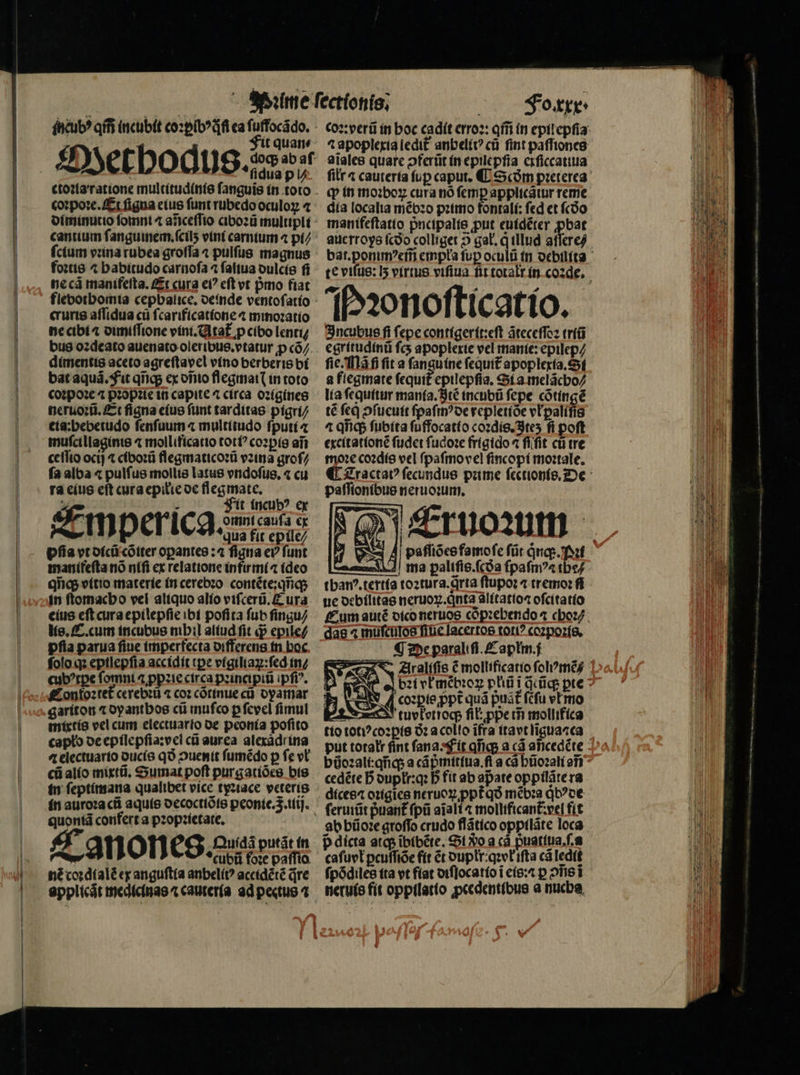 Prime sectionis. Fo.xxx.
incubꝰ qm̄ incubit corꝑibꝰ q̃si ea suffocãdo.
Methodus. Fit quan⸗
doqꝫ ab af
sidua p l⸗
ctoria ratione multitudinis sanguis in toto
corpore. Et signa eius sunt rubedo oculoꝝ ⁊
diminutio somni ⁊ añcessio ciborũ multipli
cantium sanguinem, scilꝫ vini carnium ⁊ pi⸗
scium vrina rubea grossa ⁊ pulsus magnus
fortis ⁊ habitudo carnosa ⁊ saliua dulcis si
ne cã manifesta. Et cura eiꝰ est vt p̃mo fiat
flebothomia cephalice, deinde ventosatio
cruris assidua cũ scarificatione ⁊ minoratio
ne cibi ⁊ dimissione vini. Utat̃ ꝓ cibo lenti⸗
bus ordeato auenato oleribus. vtatur ꝓ cõ⸗
dimentis aceto agresta vel vino berberis bi
bat aquã. Fit qñqꝫ ex dñio flegmatꝭ in toto
corpore ⁊ proprie in capite ⁊ circa origines
neruorũ. Et signa eius sunt tarditas pigri⸗
tia: hebetudo sensuum ⁊ multitudo sputi ⁊
muscillaginis ⁊ mollificatio totiꝰ corpis añ
cessio ocij ⁊ ciborũ flegmaticorũ vrina gros⸗
sa alba ⁊ pulsus mollis latus vndosus, ⁊ cu
ra eius est cura epilie de flegmate.
Emperica. Fit incubꝰ ex
omni causa ex
qua fit epile⸗
psia vt dictũ cõiter opantes: ⁊ signa eiꝰ sunt
manifesta nõ nisi ex relatione infirmi ⁊ ideo
qñqꝫ vitio materie in cerebro contẽte: qñqꝫ
in stomacho vel aliquo alio viscerũ. Cura
eius est cura epilepsie ibi posita sub singu⸗
lis. C. cum incubus nihil aliud sit q̃ꝫ epile⸗
psia parua siue imperfecta differens in hoc
solo qꝛ epilepsia accidit tꝑe vigiliaꝝ: sed in⸗
cubꝰ tꝑe somni ⁊ ꝓprie circa principiũ ipsiꝰ.
Confortet̃ cerebrũ ⁊ cor cõtinue cũ dyamar
gariton ⁊ dyanthos cũ musco ꝑ se vel simul
mixtis vel cum electuario de peonia posito
caplo de epilepsia: vel cũ aurea alexãdrina
⁊ electuario ducis qđ ꝯuenit sumẽdo ꝑ se vł
cũ alio mixtũ. Sumat post purgatiões bis
in septimana qualibet vice tyriace veteris
in aurora cũ aquis decoctiõis peonie. ℥.iiij.
quoniã confert a proprietate.
Canones. Quidã putãt in
cubũ fore passio
nẽ cordialẽ ex angustia anhelitꝰ accidẽtẽ q̃re
applicãt medicinas ⁊ cauteria ad pectus ⁊
cor: verũ in hoc cadit error: qm̄ in epilepsia
⁊ apoplexia ledit̃ anhelitꝰ cũ sint passiones
aĩales quare ꝯferũt in epilepsia exsiccatiua
silr̃ ⁊ cauteria suꝑ caput. ¶ Scđm preterea
ꝙ in morboꝝ cura nõ semꝑ applicãtur reme
dia localia mẽbro primo fontali: sed et scđo
manifestatio p̃ncipalis ꝓut euidẽter ꝓbat
auerroys scđo colliget ꝯ gał. q̃ illud assere⸗
bat. ponimꝰ em̃ empl'a suꝑ oculũ in debilita
te visus: lꝫ virtus visiua sit totalr̃ in corde.
Pronosticatio.
Incubus si sepe contigerit: est ãtecessor triũ
egritudinũ scꝫ apoplexie vel manie: epilep⸗
sie. Nã si sit a sanguine sequit̃ apoplexia. Si
a flegmate sequit̃ epilepsia. Si a melãcho⸗
lia sequitur mania. Itẽ incubũ sepe cõtingẽ
tẽ seq̃ ꝯsueuit spasmꝰ de repletiõe vł palisis
⁊ qñqꝫ subita suffocatio cordis. Iteꝫ si post
excitationẽ sudet sudore frigido ⁊ si sit cũ tre
more cordis vel spasmo vel sincopi mortale.
¶ Tractatꝰ secundus prime sectionis. De
passionibus neruorum.
Neruorum
passiões famose sũt q̃nqꝫ. Pri
ma palisis. scđa spasmꝰ ⁊ the⸗
thanꝰ. tertia tortura. q̃rta stupor ⁊ tremor si
ue debilitas neruoꝝ. q̃nta alitatio ⁊ oscitatio
Cum autẽ dico neruos cõprehendo ⁊ chor⸗
das ⁊ musculos siue lacertos totiꝰ corporis.
¶ De paralisi. Caplm.j
Paralisis ẽ mollificatio solꝰ mẽ⸗
bri vł mẽbroꝝ pliũ i q̃cũqꝫ pte
corpis, ꝓpt̃ quã p̃uãt̃ sẽsu vł mo
tu vł vtroqꝫ sił: ꝓpe tñ mollifica
tio totiꝰ corpis đr a collo ĩfra ita vt lĩgua ⁊ ea
put totalr̃ sint sana. Fit qñqꝫ a cã añcedẽte
hũorali: qñqꝫ a cã p̃mitiua. si a cã hũorali añ
cedẽte ħ duplr̃: qꝛ ħ fit ab aꝑate oppilãte ra
dices ⁊ origĩes neruoꝝ ꝓpt̃ qđ mẽbra q̃bꝰ de
seruiũt p̃uant̃ spũ aĩali ⁊ mollificant̃: vel fit
ab hũore grosso crudo flãtico oppilãte loca
p̃dicta atqꝫ ibibẽte. Si ꝟo a cã p̃uatiua. s. a
casu vł ꝑcussiõe fit ẽt duplr̃: qꝛ vł ista cã ledit
spõdiles ita vt fiat dislocatio ĩ eis: ⁊ ꝑ ꝯñs ĩ
neruis fit oppilatio ꝓcedentibus a nucha
Neruoꝝ passiões famose. 5.